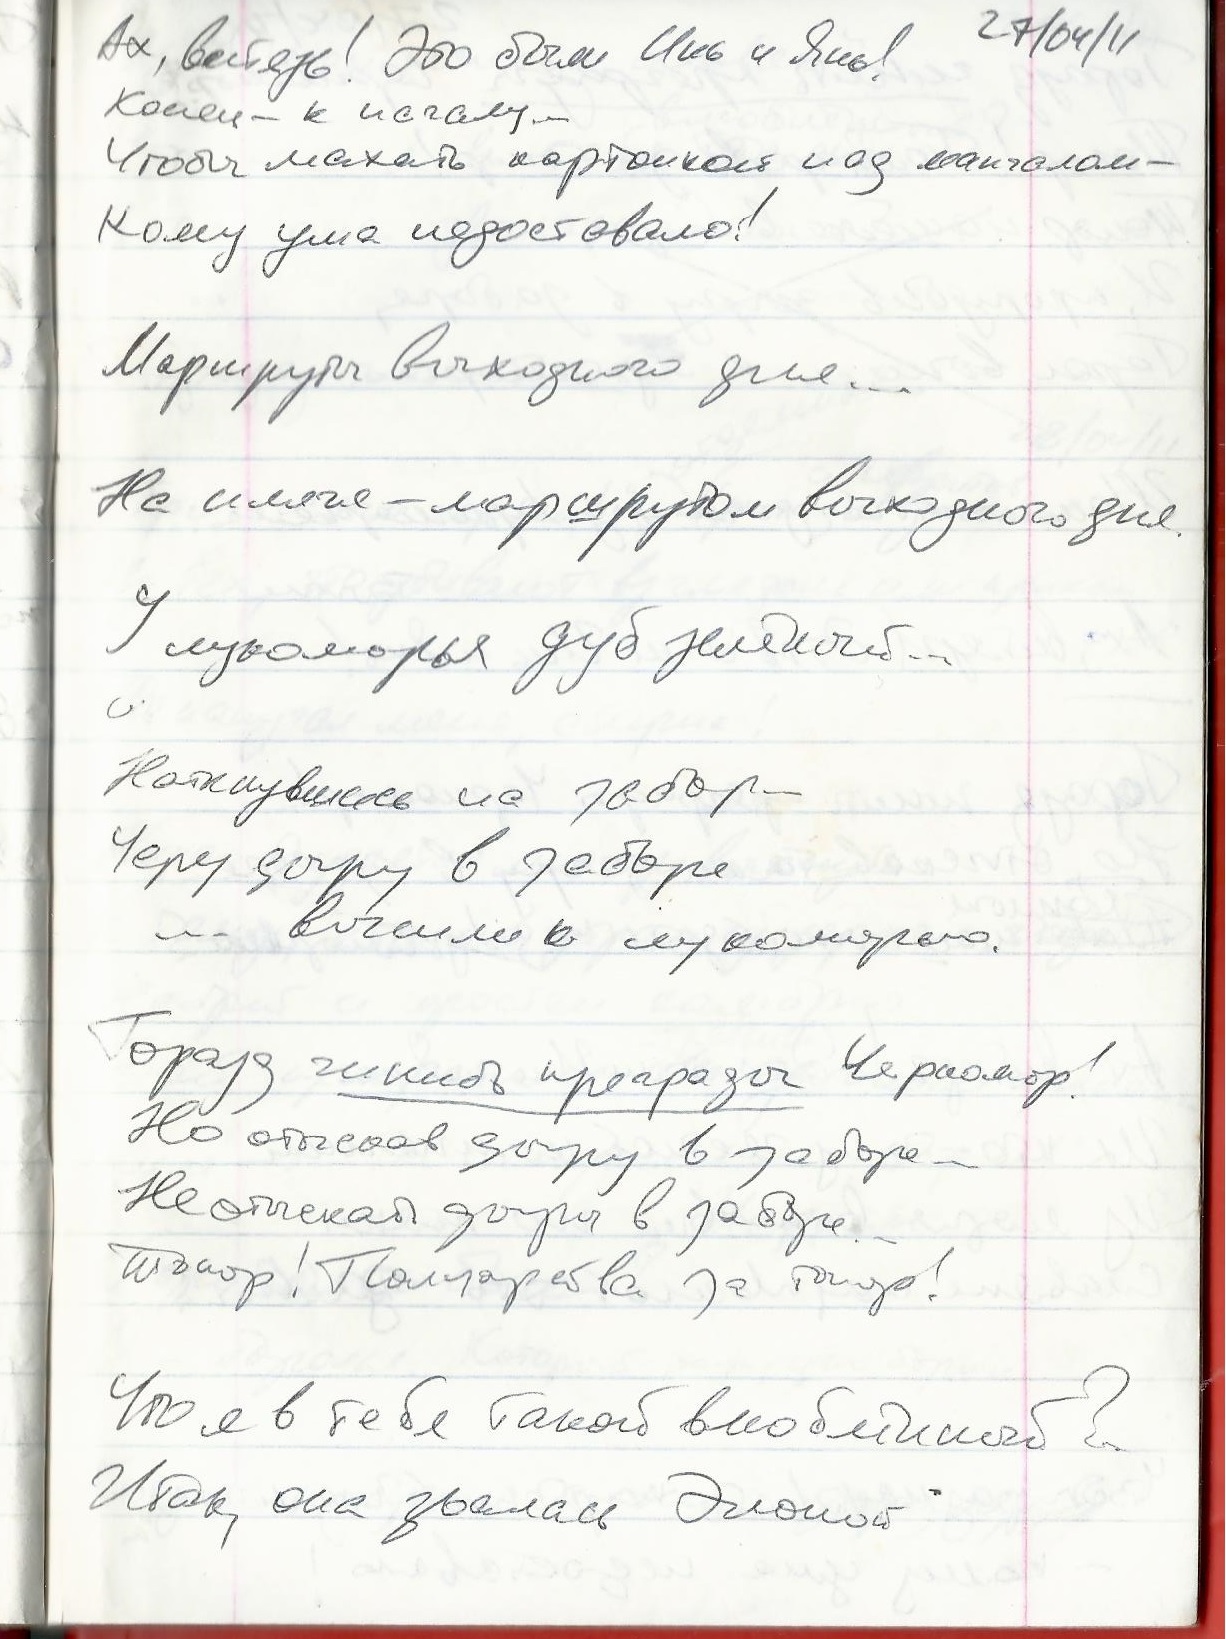 27/04/11
Ах, витязь! Это были Инь и Янь!
Конец – к началу...
Чтобы махать картонкой над мангалом –
Кому ума недоставало!
Маршруты выходного дня...
На пляже – маршрутом выходного дня.
У лукоморья дуб зелёный...
Наткнувшись на забор...
Через дыру в заборе
... вышли к лукоморью.
Горазд чинить преграды Черномор!
Но отыскав дыру в заборе...
Не отыскать дыры в заборе...
Топор! Полцарства за топор!
Что я в тебя такой влюблённый?..
Итак, она звалась Элоной